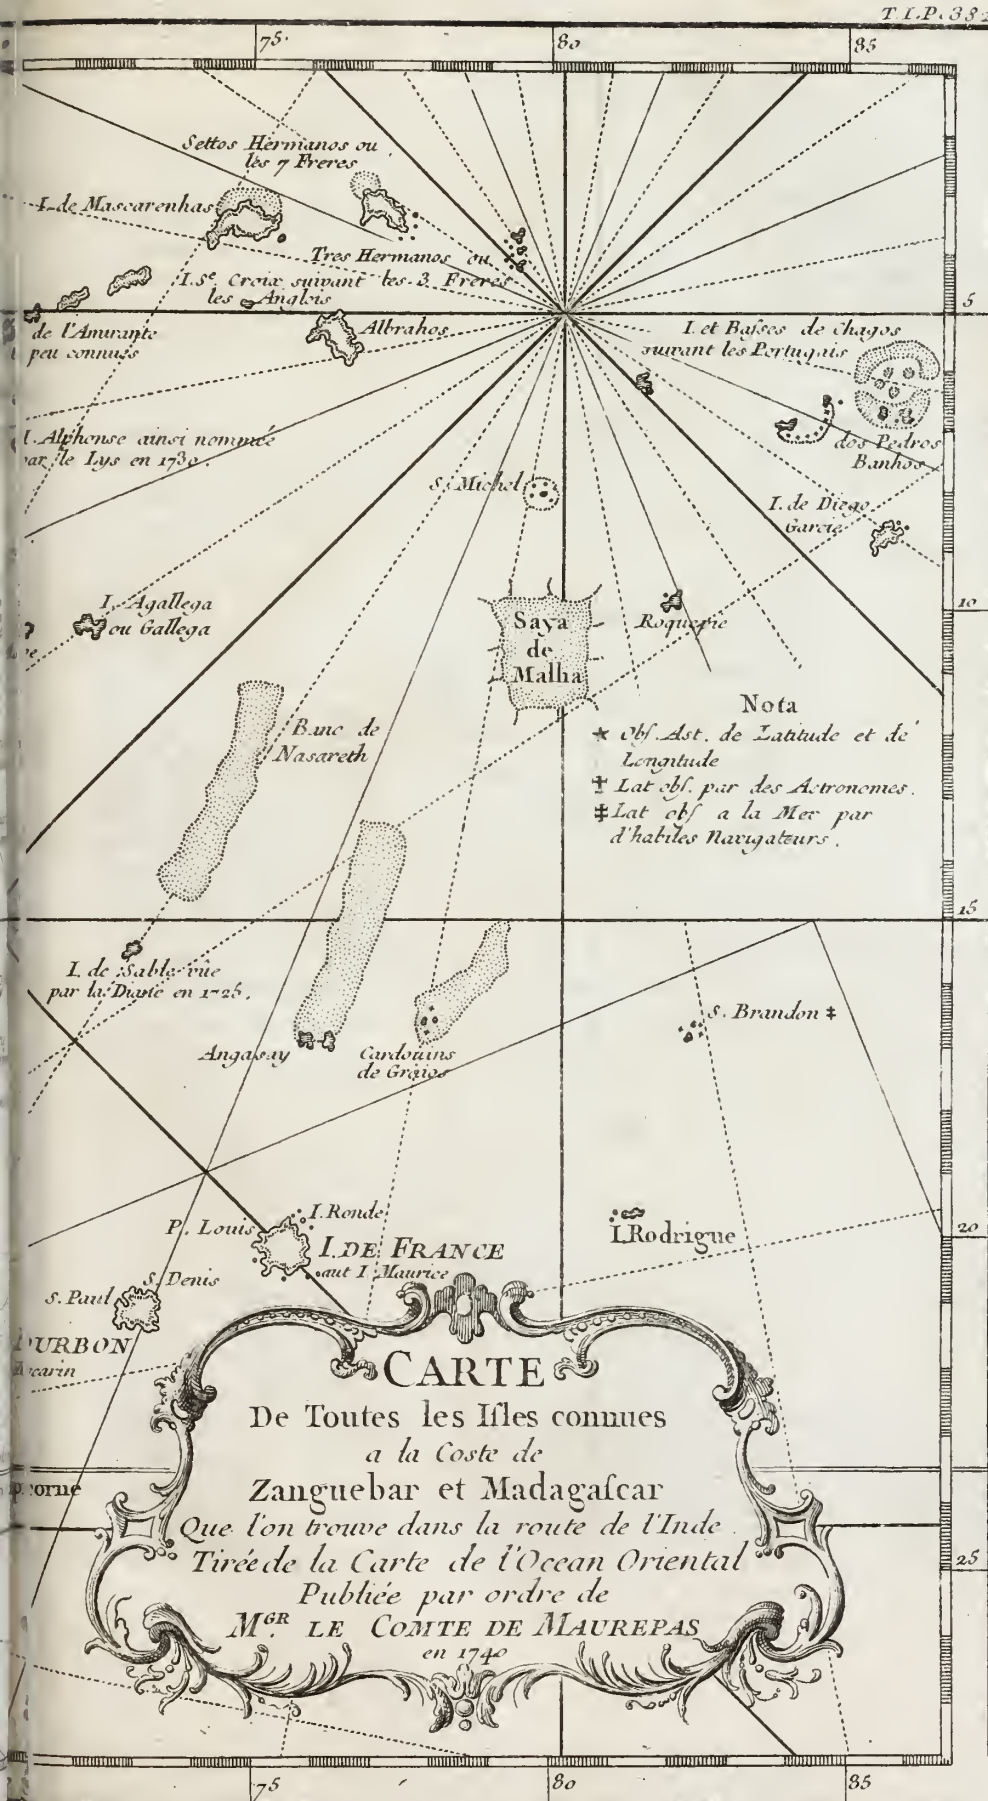 T.I.P.
75.
80
85
Settos Hermanos ou
les 7 Freres
I. de Mascarenhas
Tres Hermanos ou
les 3 Freres
I. Se. Croix suivant
les Anglois
5
de l'Amirante
peu connues
Albrahos
I. et Baſses de chagos
suivant les Portugais
I. Alphonse ainsi nommée
par le Lys en 1730.
dos Pedros
Banhos
S. Michel
I. de Diego
Garcie
10
I. Agallega
ou Gallega
Saya
de
Malha
Roquepie
Banc de
Nasareth
Nota
* Obſ. Ast. de Latitude et de
Longitude
† Lat obſ. par des Astronomes.
‡ Lat obſ a la Mer par
d'habiles Navigateurs.
15
I. de Sable vûe
par la Diane en 172
S. Brandon ‡
Angasay
Cardouins
de Graios
P. Louis
I. Ronde
I. DE FRANCE
aut I. Maurice
I. Rodrigue
20
S. Denis
S. Paul
OURBON
carin
CARTE
De Toutes les Iſles connues
a la Coste de
Zanguebar et Madagaſcar
Que l'on trouve dans la route de l'Inde.
Tirée de la Carte de l'Ocean Oriental
Publiée par ordre de
MGR. LE COMTE DE MAUREPAS
en 1740
corne
25
75
80
85